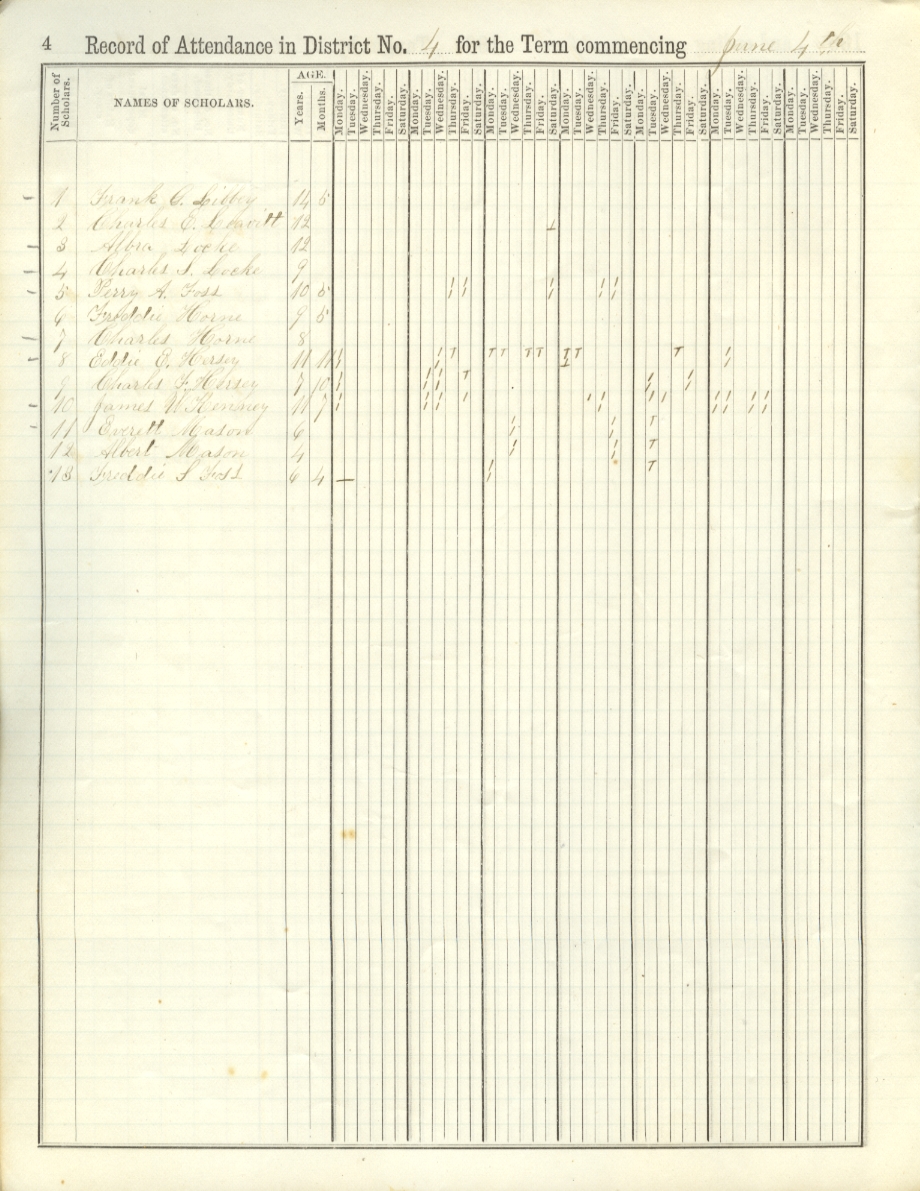 4 Record of Attendance in District No. 4 for the Term commencing June 4th
Number of Scholars. NAMES OF SCHOLARS. AGE. Years. Months. Monday. Tuesday. Wednesday. Thursday. Friday. Saturday. Monday. Tuesday. Wednesday. Thursday. Friday. Saturday. Monday. Tuesday. Wednesday. Thursday. Friday. Saturday. Monday. Tuesday. Wednesday. Thursday. Friday. Saturday. Monday. Tuesday. Wednesday. Thursday. Friday. Saturday. Monday. Tuesday. Wednesday. Thursday. Friday. Saturday. Monday. Tuesday. Wednesday. Thursday. Friday. Saturday.
1 Frank G. Libbey 14 5
2 Charles E. Leavitt 12
3 Albra Locke 12
4 Charles S. Locke 9
5 Perry A. Foss 10 5
6 Freddie Horne 9 5
7 Charles Horne 8
8 Eddie E. Hersey 11 11 T T T T T T T T
9 Charles F. Hersey 7 10 T
10 James W. Kenney 11 7
11 Everett Mason 6 T
12 Albert Mason 4 T
13 Freddie S Foss 6 4 T